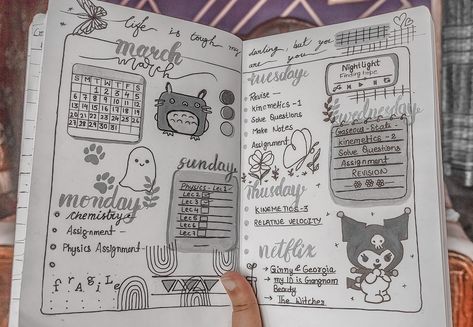 life is tough my
darling, but are you
you
march
march
S M T W T F S
1 2 3 4 5
6 7 8 9 10 11 12
13 14 15 16 17 18 19
20 21 22 23 24 25 26
27 28 29 30 31
sunday
Physics Lec 1
Lec 2
Lec 3
Lec 4
Lec 5
Lec 6
Lec 7
monday
chemistry
Assignment
Physics Assignment
fragile
tuesday
Revise
Kinemetics - 1
Solve Questions
Make Notes
Assignment
Nightlight
Finding hope
wednesday
Gaseous State
Kinemetics - 2
Solve Questions
Assignment
REVISION
thursday
KINEMETICS - 3
RELATIVE VELOCITY
netflix
→ Ginny & Georgia
→ my ID is Gangnam
Beauty
→ The Witcher